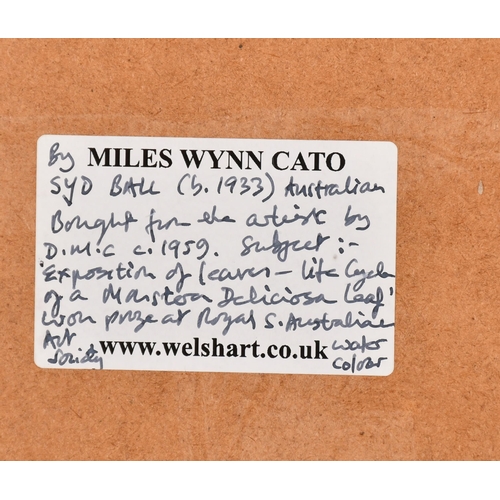 By MILES WYNN CATO
SYD BALL (b. 1933) Australian
Bought from the artist by
D.M.C c. 1959. Subject :-
'Exposition of leaves - life Cycle
of a Monstera Deliciosa Leaf'
Won prize at Royal S. Australian
Art Society www.welshart.co.uk water colour